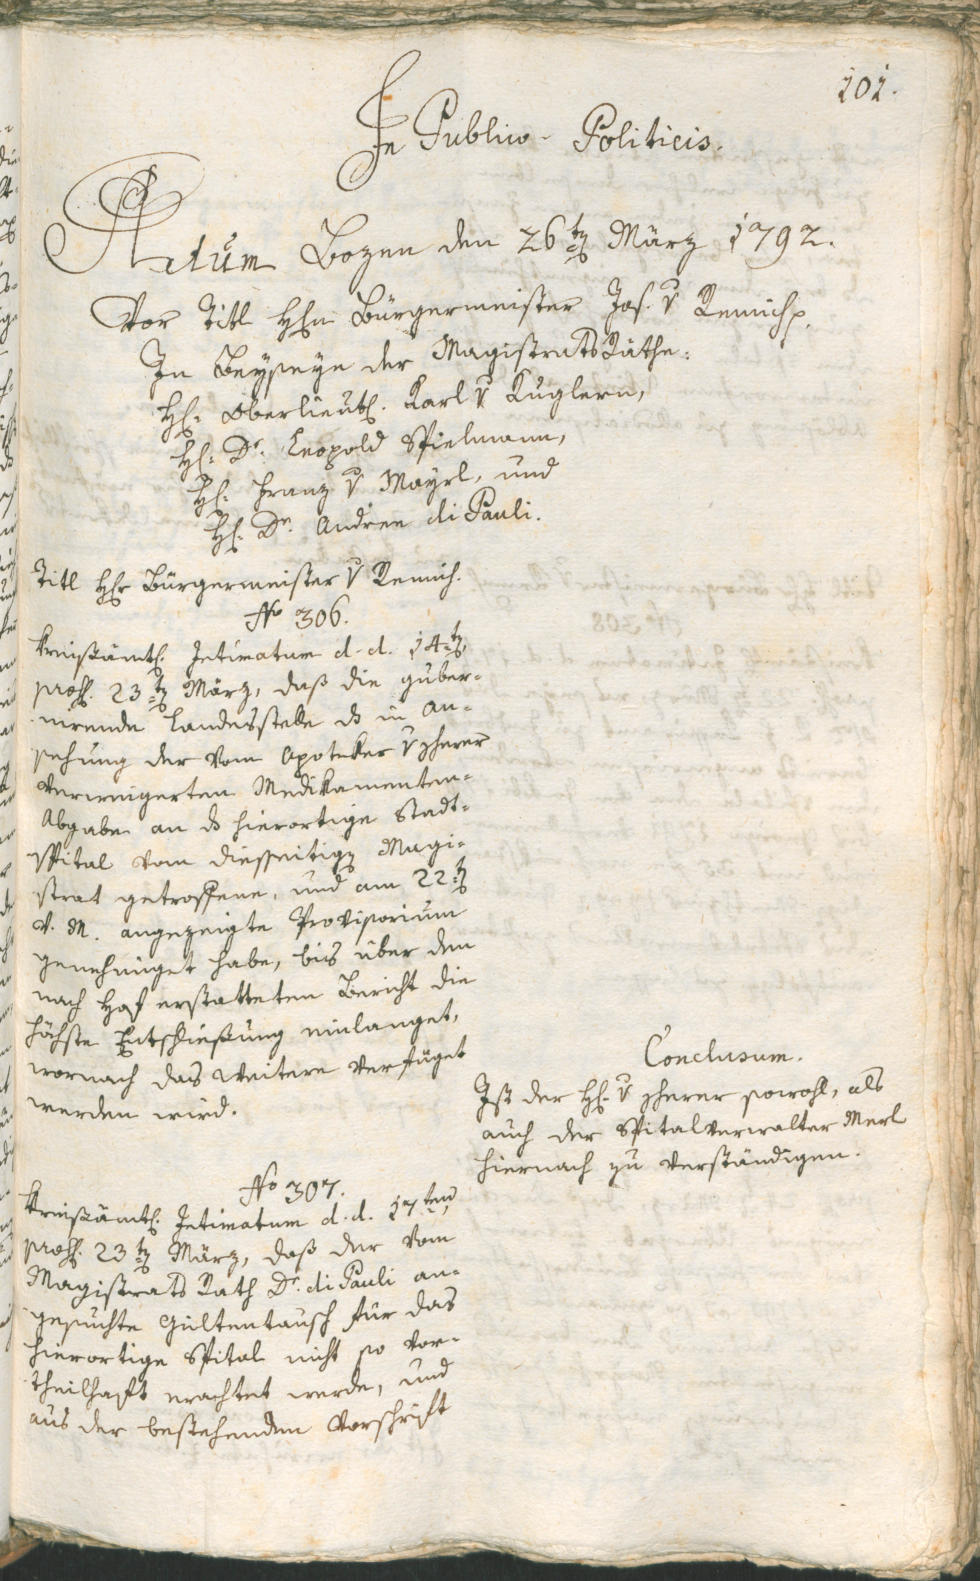 101.
In Publico-Politicis.
Actum Bozen den 26ten März 1792.
Vor Titl Hhn Bürgermeister Jos. v Remich
In Beyseye der MagistratsRäthe:
H: Oberlieut. Karl v Kuglern,
H: Dr. Leopold Spielmann,
H: Franz v Mayrl, und
H: Dr. Andree di Pauli.
Titl Hhr Bürgermeister v Remich.
No 306.
kreißämtl. Intimatum d. d. 14ten,
præs. 23ten März, daß die guber-
nirende Landesstelle ds in An-
sehung der vom Apoteker v
verweigerten Medikamenten-
Abgabe an ds hierortige Stadt-
spital vom diesseitigen Magi-
strat getroffene, und am 22ten
v. M. angezeigte Provisorium
genehmiget habe, bis über den
nach Hof erstatteten Bericht die
höchste Entschließung einlanget,
wornach das Weitere verfüget
werden wird.
Conclusum.
Ist der H. v sowohl, als
auch der Spitalverwalter Merl
hiernach zu verständigen.
No 307.
kreißämtl. Intimatum d. d. 17ten,
præs. 23ten März, daß der vom
Magistrats Rath Dr. di Pauli an-
gesuchte Gültentausch für das
hierortige Spital nicht so vor-
theilhaft erachtet werde, und
aus der bestehenden Vorschrift